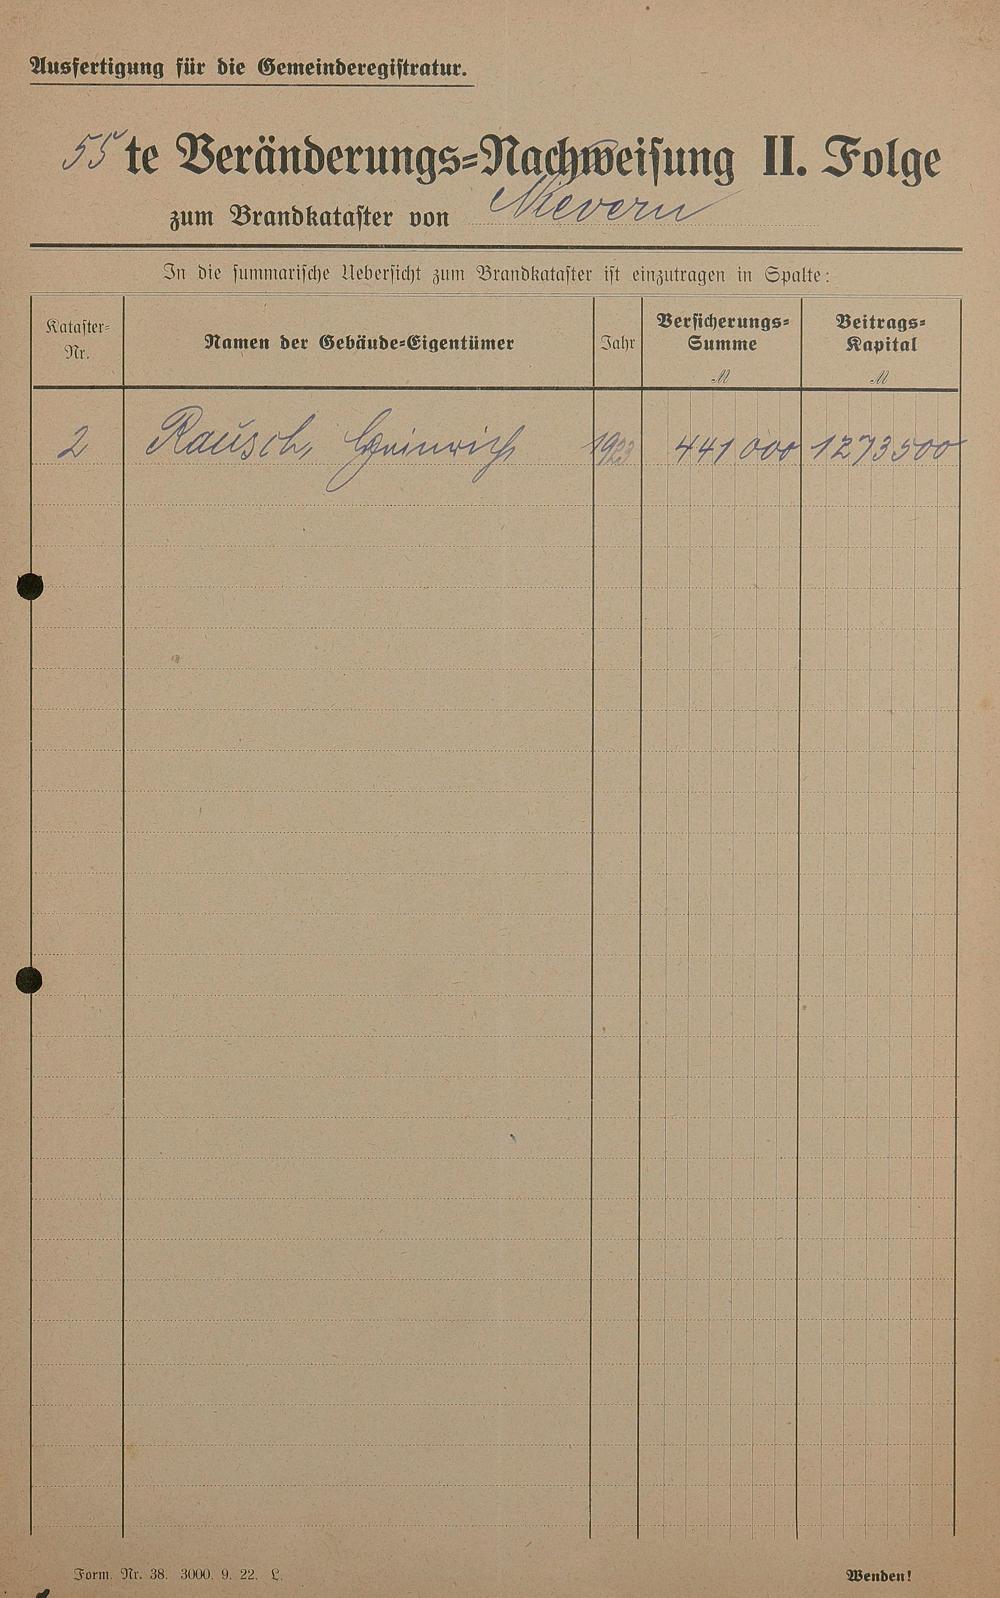 Ausfertigung für die Gemeinderegistratur.
55te Veränderungs-Nachweisung II. Folge
zum Brandkataster von Nievern
In die summarische Uebersicht zum Brandkataster ist einzutragen in Spalte:
Kataster-Nr.
Namen der Gebäude-Eigentümer
Jahr
Versicherungs-Summe
M
Beitrags-Kapital
M
2 Rausch, Heinrich 1923 441 000 1273500
Form. Nr. 38. 3000. 9. 22. L.
Wenden!